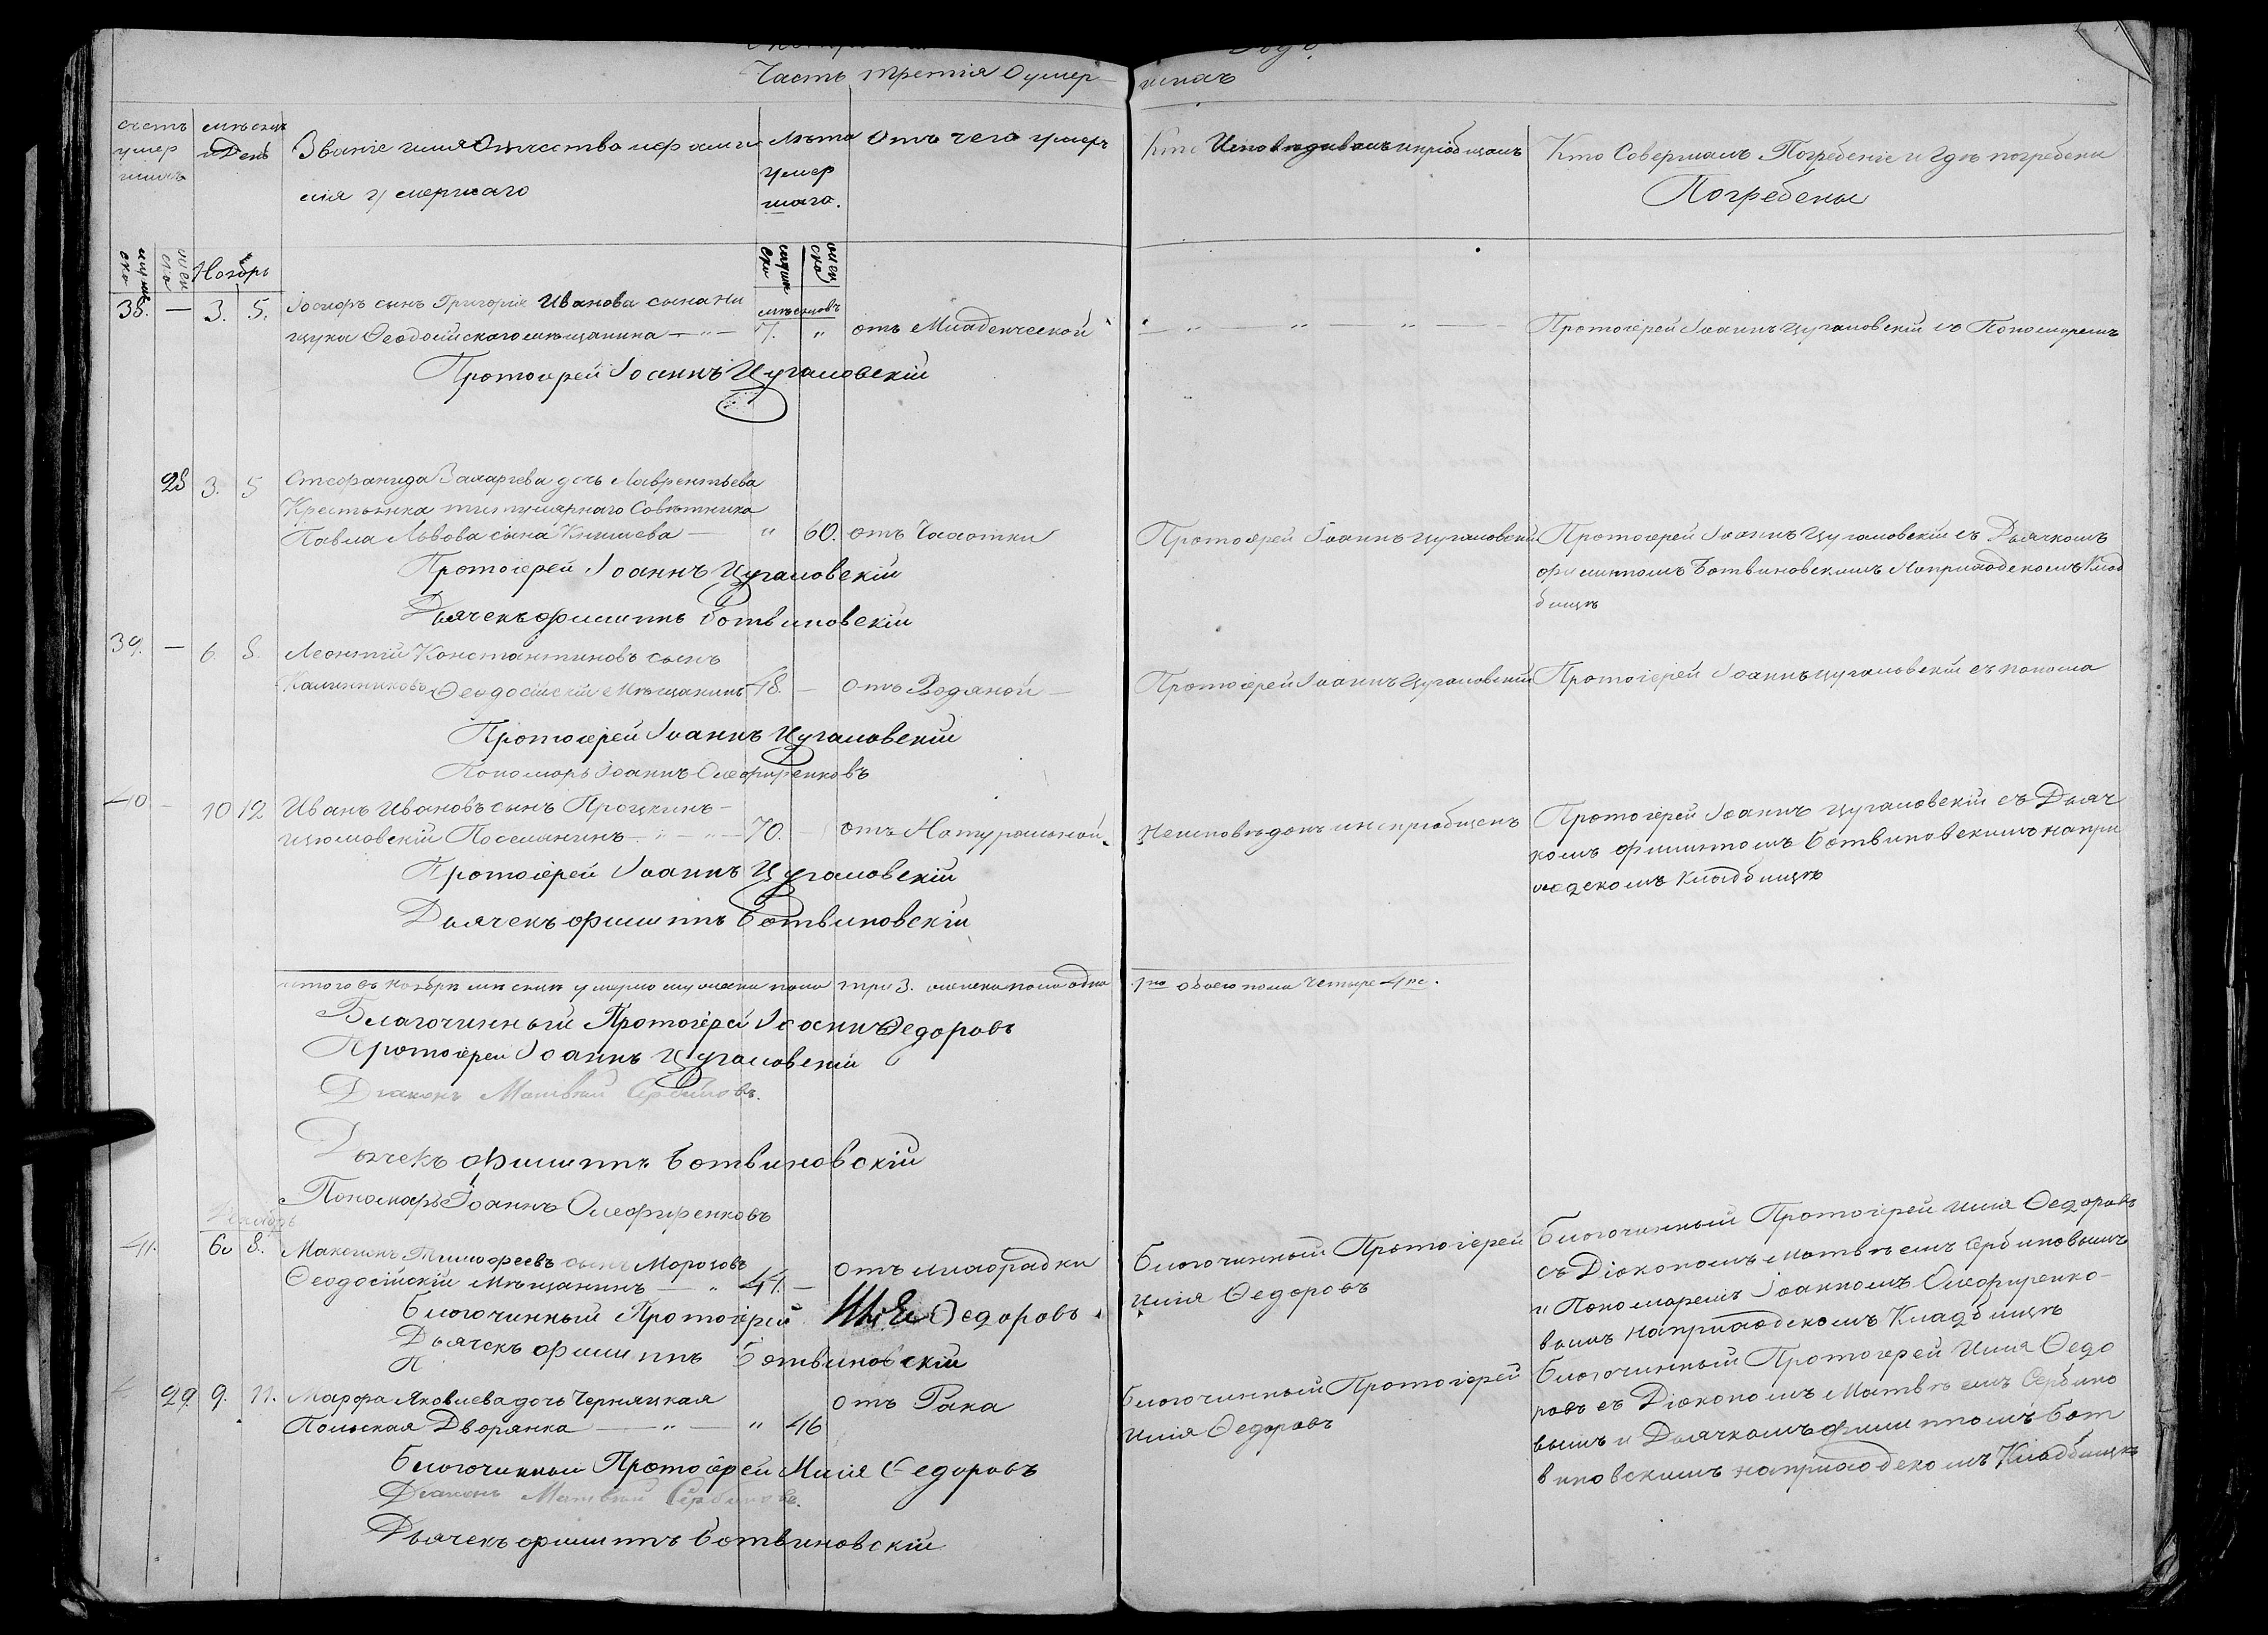 Часть третія о умер
шихъ
счетъ умер шихъ
мѣсяцъ и День
Званіе имя Отчество и фами
лія умершаго
Лѣта умер шаго.
Отъ чего умеръ
Кто Исповѣдывалъ и пріобщалъ
Кто Совершалъ Погребеніе и гдѣ погребены
Погребены
муже ска
жен ска
Ноябрь
38. — 3. 5. Іосифъ сынъ Григорія Иванова сына Ни
мѣсяцовъ
щука Ѳеодосійскаго мѣщанина — " — 7. " отъ Младенческой
— " — " — " —
Протоіерей Іоаннъ Цугаловскій съ Пономаремъ
Протоіерей Іоаннъ Цугаловскій
28 3. 5 Стефанида Захаріева дочь Лаврентьева
Крестьянка титулярнаго Совѣтника
Павла Львова сына Князева — " 60. отъ Чахотки
Протоіерей Іоаннъ Цугаловскій
Протоіерей Іоаннъ Цугаловскій съ Дьячкомъ
филиппомъ Ботвиновскимъ На приходскомъ Клад
бищѣ
Протоіерей Іоаннъ Цугаловскій
Дьячекъ филиппъ Ботвиновскій
39. — 6. 8. Леонтій Константиновъ сынъ
Калинниковъ Ѳеодосійскій Мѣщанинъ 48. — отъ Водяной —
Протоіерей Іоаннъ Цугаловскій
Протоіерей Іоаннъ Цугаловскій съ понома
Протоіерей Іоаннъ Цугаловскій
Пономарь Іоаннъ Олефиренковъ
40 — 10 12 Иванъ Ивановъ сынъ Процкинъ —
Изюмовскій Поселянинъ — " — " — 70. отъ Натуральной
Неисповѣданъ и не пріобщенъ
Протоіерей Іоаннъ Цугаловскій съ Дьяч
комъ филиппомъ Ботвиновскимъ на при
ходскомъ Кладбищѣ
Протоіерей Іоаннъ Цугаловскій
Дьячекъ филиппъ Ботвиновскій
итого въ ноябрѣ мѣсяцѣ умерло мужеска пола три 3. женска пола одна
1на обоего пола четыре 4ре.
Благочинный Протоіерей Ѳедоровъ
Протоіерей Іоаннъ Цугаловскій
Діаконъ Матвѣй Сербиновъ.
Дьячекъ филиппъ Ботвиновскій
Пономарь Іоаннъ Олефиренковъ
Декабрь
41. 6. 8. Тимофеевъ сынъ Морозовъ
Ѳеодосійскій Мѣщанинъ — " 44. — отъ лихорадки
Благочинный Протоіерей
Илія Ѳедоровъ
Благочинный Протоіерей Илія Ѳедоровъ
съ Діакономъ Матвѣемъ Сербиновымъ
и Пономаремъ Іоанномъ Олефиренко-
вымъ на приходскомъ Кладбищѣ
Благочинный Протоіерей Ѳедоровъ
Дьячекъ филиппъ Ботвиновскій
П
29. 9. 11. Марфа Яковлева дочь Черняцкая
Польская Дворянка — " — " 46
отъ Рака
Благочинный Протоіерей
Илія Ѳедоровъ
Благочинный Протоіерей Илія Ѳедо
ровъ съ Діакономъ Матвѣемъ Сербино
вымъ и Дьячкомъ филиппомъ Бот
виновскимъ на приходскомъ Кладбищѣ
Благочинный Протоіерей Илія Ѳедоровъ
Діаконъ Матвѣй Сербиновъ.
Дьячекъ филиппъ Ботвиновскій